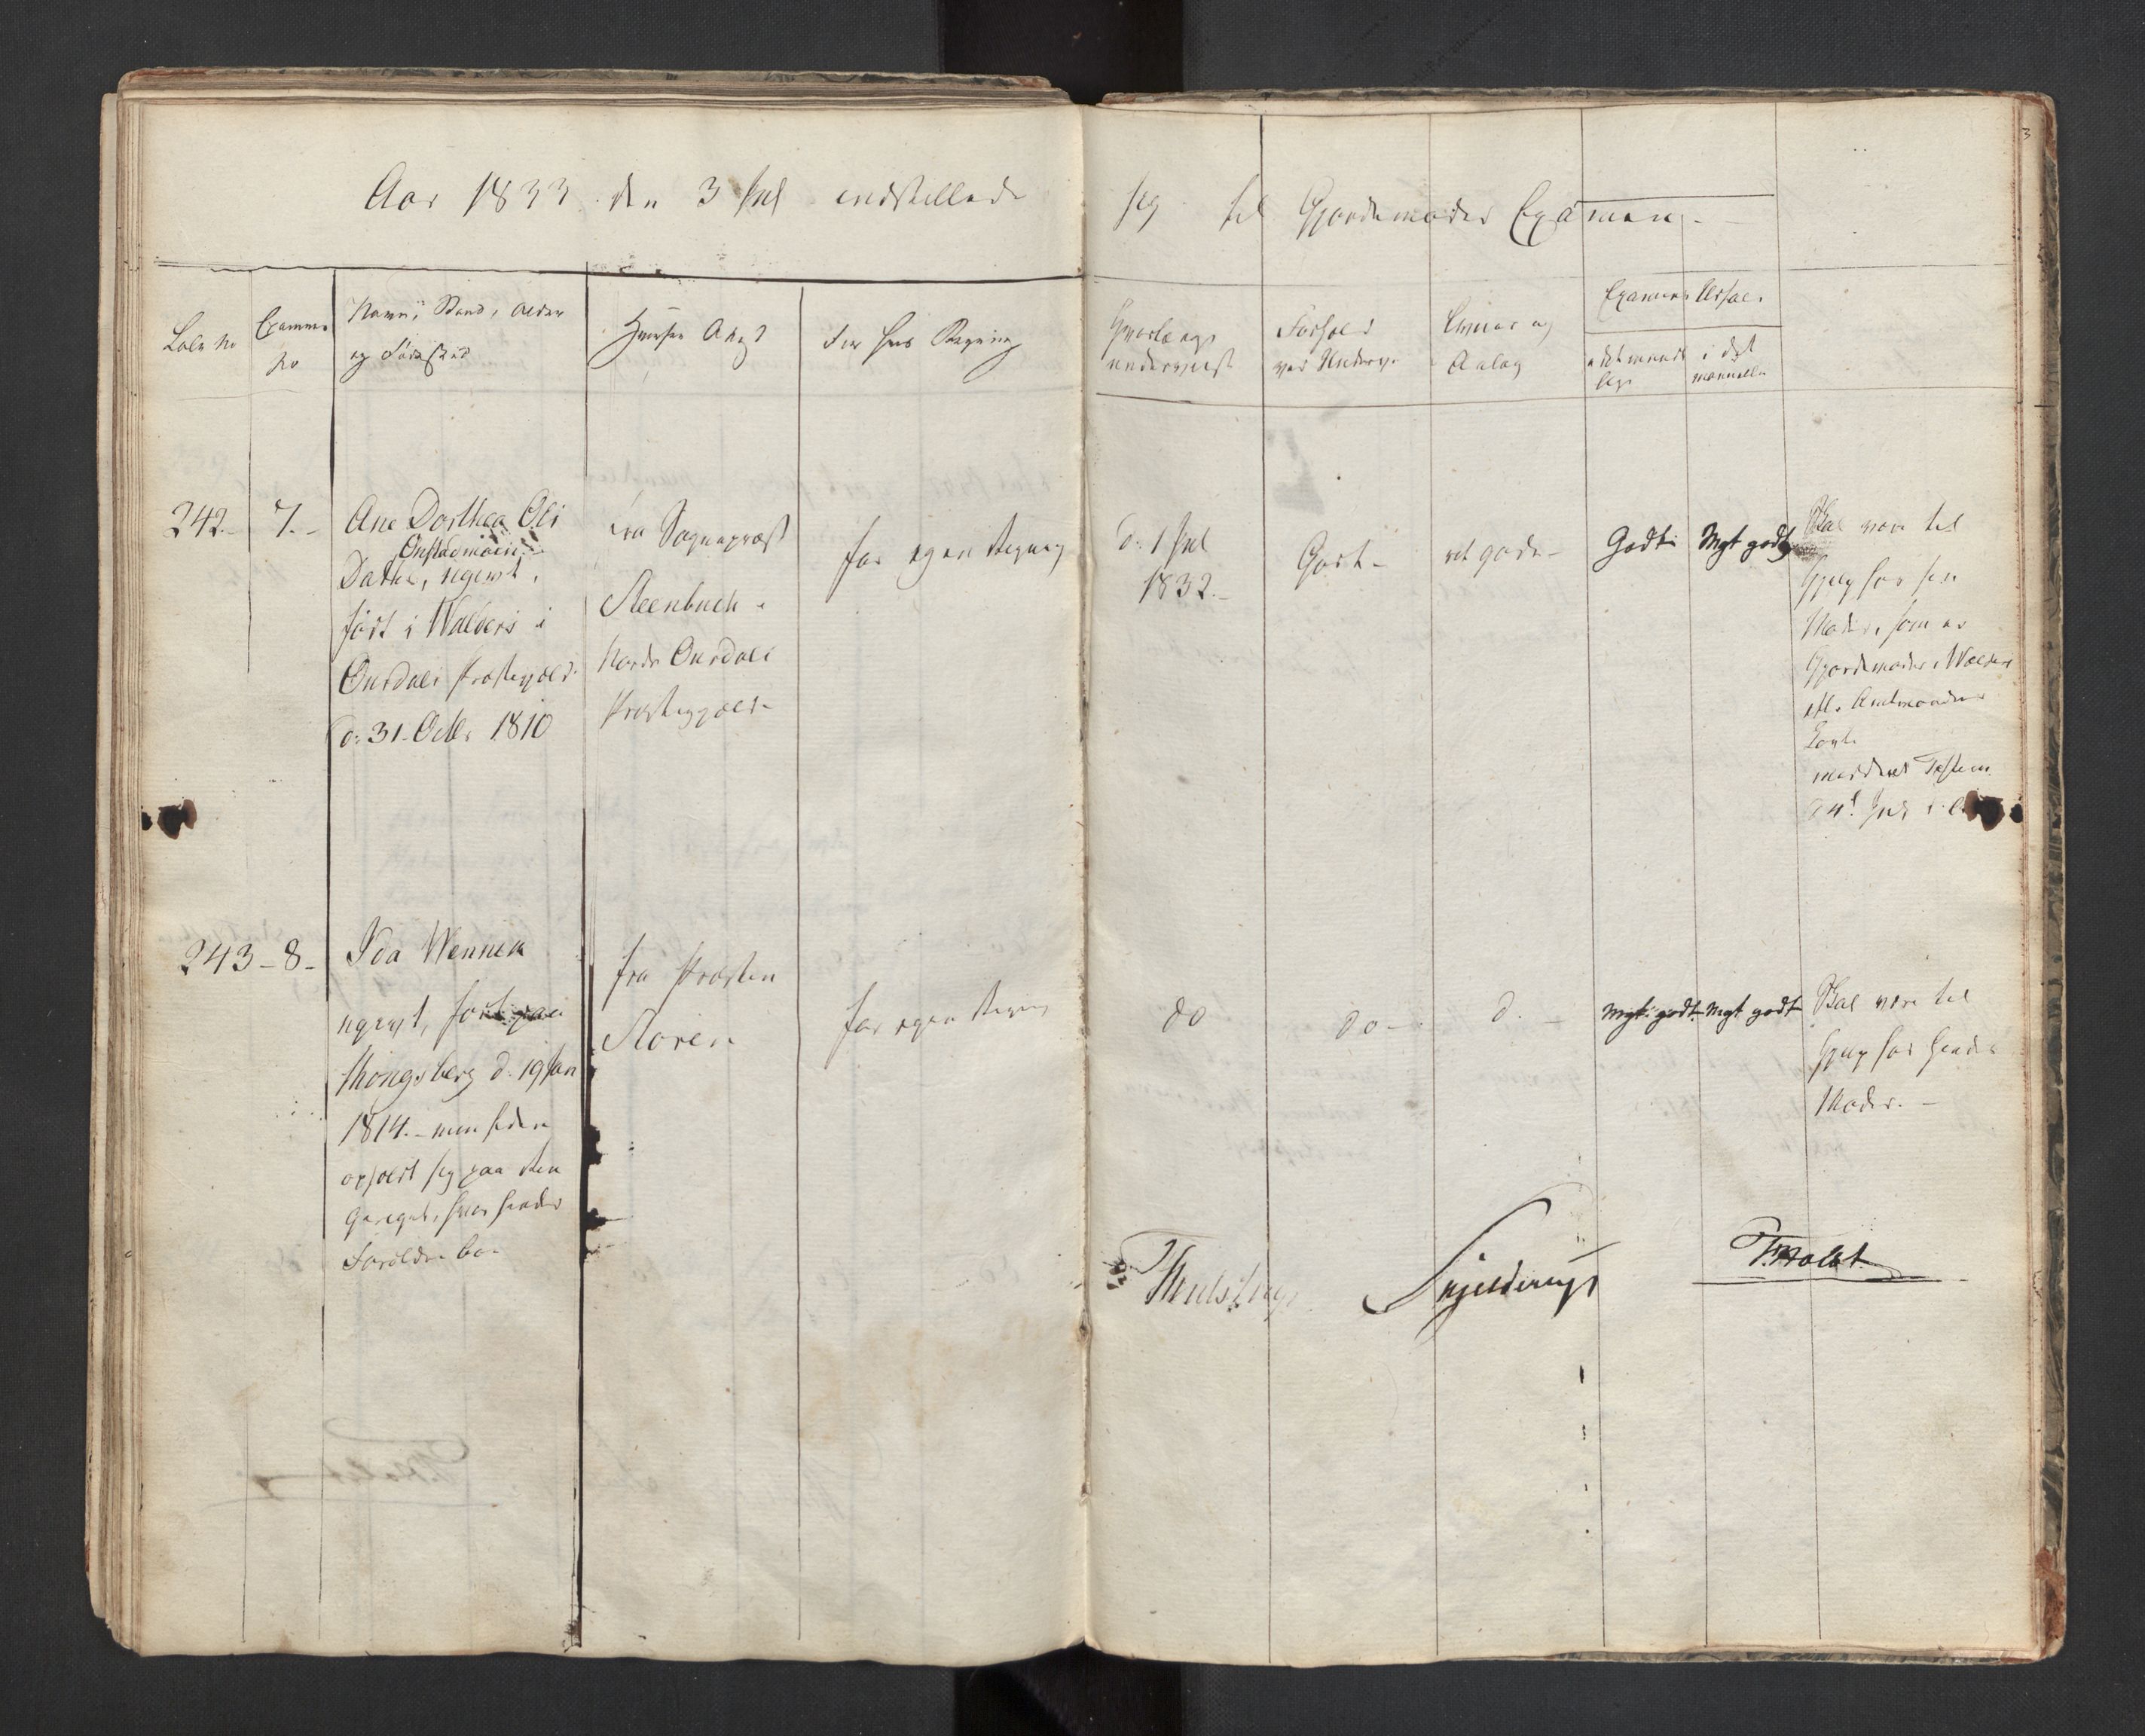 Aar 1833 den 3 Jul indstillede sig til Gjordemoder Examen.
Løbe No
Examens No
Navn, Stand, Alder
og Fødested
Hvorfra Attest
For hvis Regning
Hvorlænge
underviist
Forhold
ved Underv.
Evner og
Anlæg
Examens Udfald
i det mundtlige
i det
manuelle
242.- 7.-
Ane Dorthea Ols
Onstadmoien
Datter, ugivt,
født i Walders i
Ourdals Præstegjeld
d: 31 Octbr 1810
fra Sognepræst
Steenbuch i
Nordr Ourdals
Præstegjeld
for egen Regning
d. 1 Jul
1832.-
Godt-
ret gode-
Godt
Mgt godt
Skal være til
Hjelp for sin
Moder, som er
Gjordemoder i Walders
efter Amtmandens
meddeelt Testim.
243-8-
Ida Wennek
ugivt, født paa
Kongsberg d. 19 Jan
1814.- men siden
opholdt sig paa
hvor hendes
Forældre bo.
fra Præsten
Støren
for egen Regning
do
do-
d. -
Mgt. godt-
Mgt godt
Skal være til
Hjelp for hendes
Moder. -
Thulstrup
Skjelderup
F. Holst